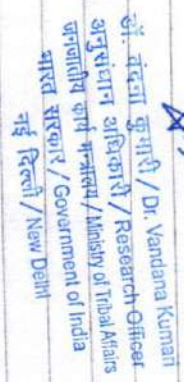 डॉ. वंदना कुमारी / Dr. Vandana Kumari
अनुसंधान अधिकारी / Research Officer
जनजातीय कार्य मन्त्रालय / Ministry of Tribal Affairs
भारत सरकार / Government of India
नई दिल्ली / New Delhi